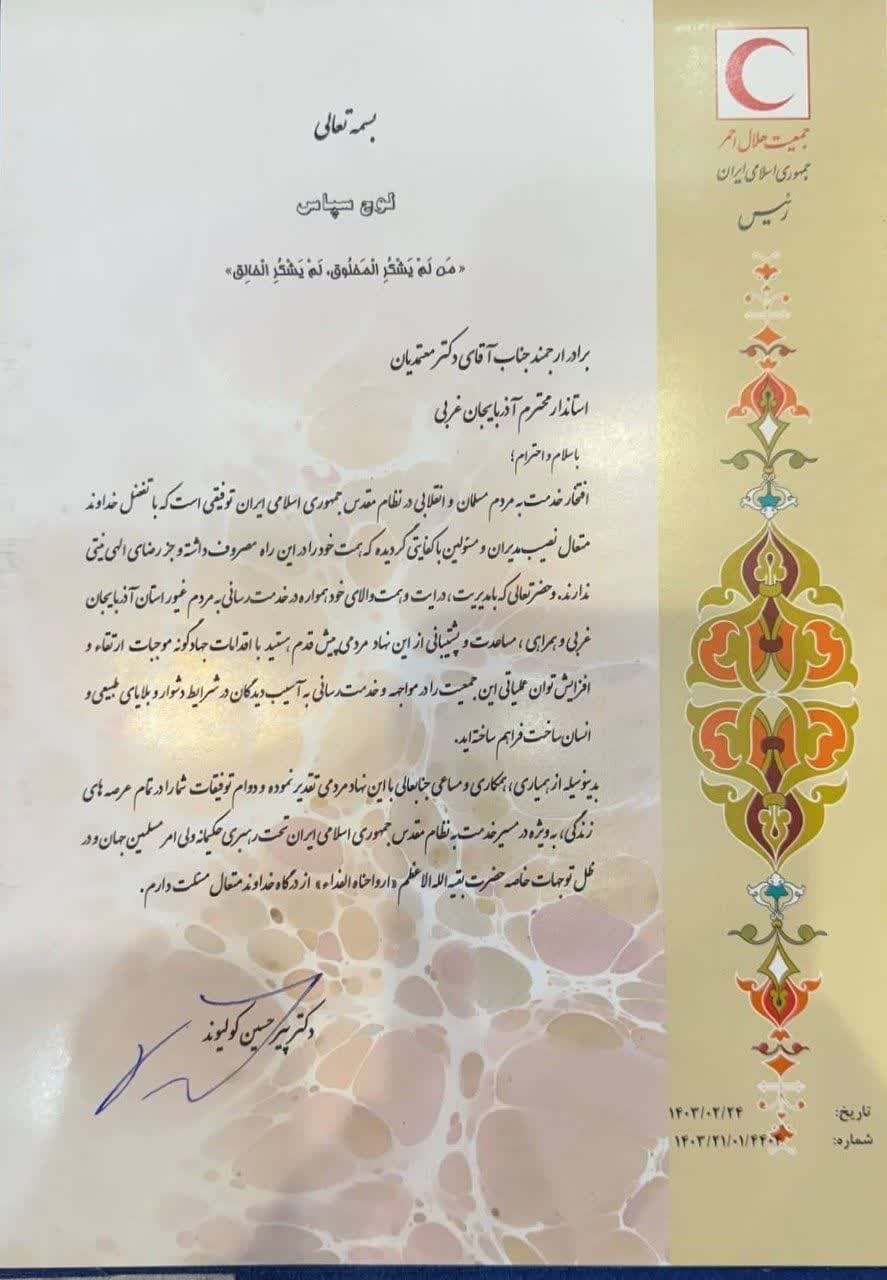 جمعیت هلال احمر
جمهوری اسلامی ایران
رئیس
بسمه تعالی
لوح سپاس
«مَن لَمْ یَشْکُرِ الْمَخلُوق، لَمْ یَشْکُرِ الْخالِق»
برادر ارجمند جناب آقای دکتر معتمدیان
استاندار محترم آذربایجان غربی
با سلام و احترام؛
افتخار خدمت به مردم مسلمان و انقلابی در نظام مقدس جمهوری اسلامی ایران توفیقی است که با تفضل خداوند
متعال نصیب مدیران و مسئولین با کفایتی گردیده که همت خود را در این راه مصروف داشته و جز رضای الهی نیتی
ندارند. و حضرتعالی که با مدیریت، درایت و همت والای خود همواره در خدمت رسانی به مردم غیور استان آذربایجان
غربی و همراهی، مساعدت و پشتیبانی از این نهاد مردمی پیش قدم هستید با اقدامات جهادگونه موجبات ارتقاء و
افزایش توان عملیاتی این جمعیت را در مواجهه و خدمت رسانی به آسیب دیدگان در شرایط دشوار و بلایای طبیعی و
انسان ساخت فراهم ساخته اید.
بدینوسیله از همیاری، همکاری و مساعی جنابعالی با این نهاد مردمی تقدیر نموده و دوام توفیقات شما را در تمام عرصه های
زندگی، به ویژه در مسیر خدمت به نظام مقدس جمهوری اسلامی ایران تحت رهبری حکیمانه ولی امر مسلمین جهان و در
ظل توجهات خاصه حضرت بقیه الله الاعظم «ارواحناه الفداء» از درگاه خداوند متعال مسئلت دارم.
دکتر پیرحسین کولیوند
تاریخ: ۱۴۰۳/۰۲/۲۴
شماره: ۱۴۰۳/۲۱/۰۱/۴۴۰۲